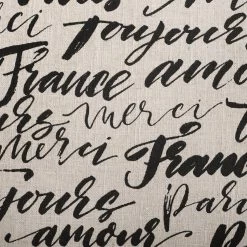 Toujours
France amo
urs merci T
merci France
jours Pari
amour